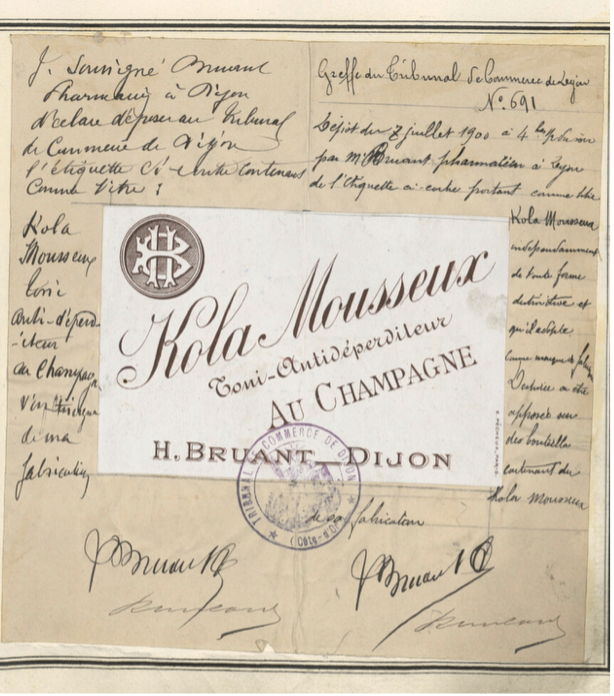 Je soussigné Bruant
Pharmacien à Dijon
déclare déposer au Tribunal
de Commerce de Dijon
l'étiquette ci-contre contenant
comme titre :
Kola
Mousseux
toni
anti-déperd-
-iteur
au Champagne
de ma
fabrication
Greffe du Tribunal de Commerce de Dijon
No. 691
Dépôt du 7 juillet 1900 à 4
par Mr Bruant pharmacien à Dijon
de l'étiquette ci-contre portant comme titre
Kola Mousseux
indépendamment
de toute forme
distinctive et
qu'il adopte
comme marque de fabrique
destinée à être
apposée sur
des bouteilles
contenant du
Kola Mousseux
de sa fabrication
HB
Kola Mousseux
Toni-Antidéperditeur
AU CHAMPAGNE
H. BRUANT DIJON
TRIBUNAL DE COMMERCE DE DIJON
(Côte-d'Or)
Bruant
Bruant